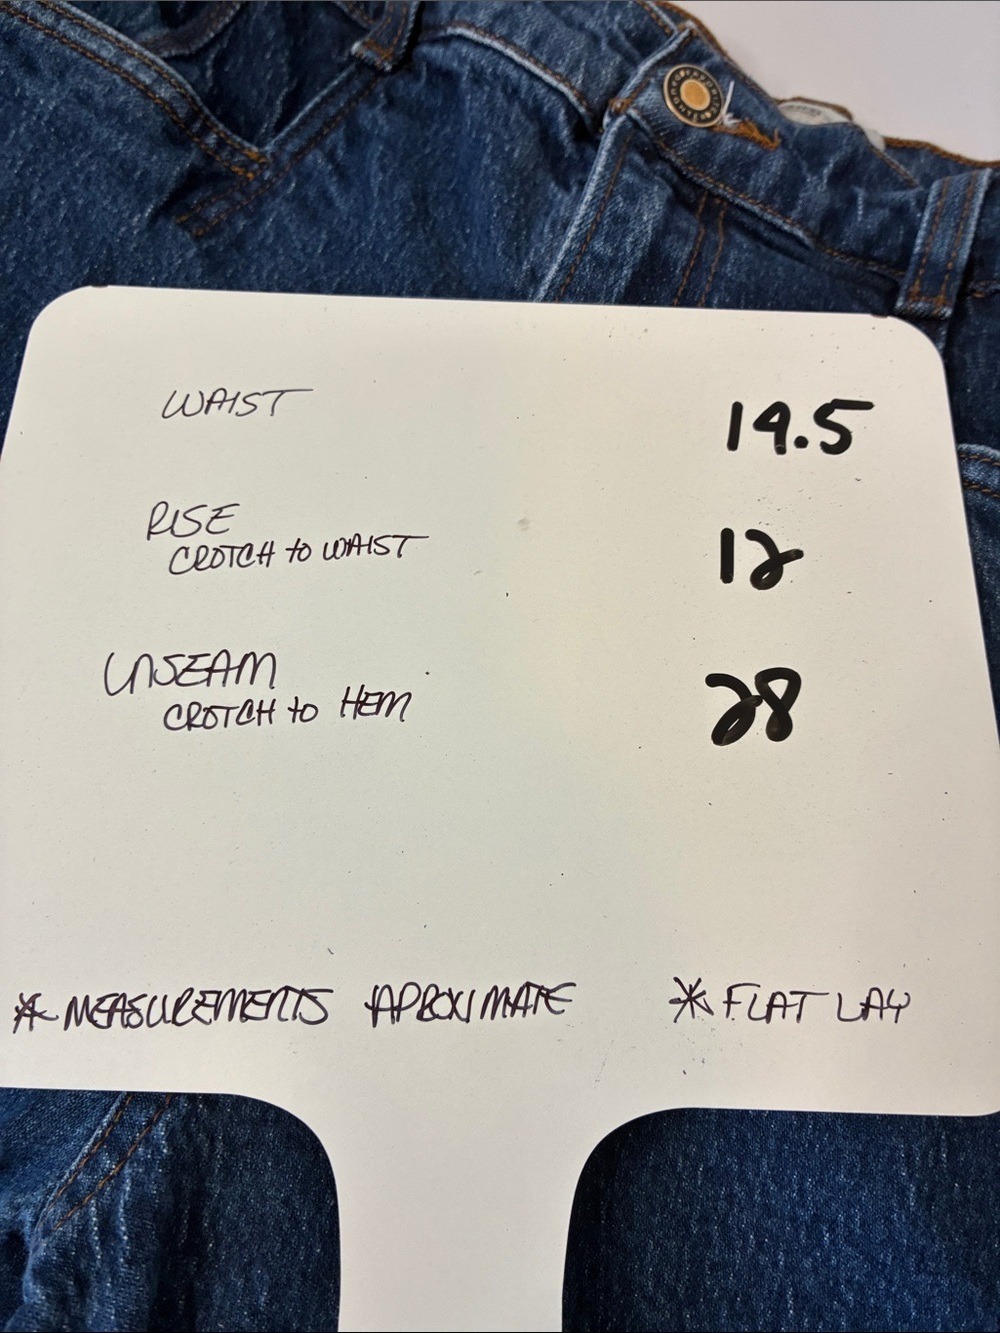 WAIST 19.5
RISE
CROTCH to WAIST 12
INSEAM
CROTCH to HEM 28
* MEASUREMENTS APROXIMATE * FLAT LAY